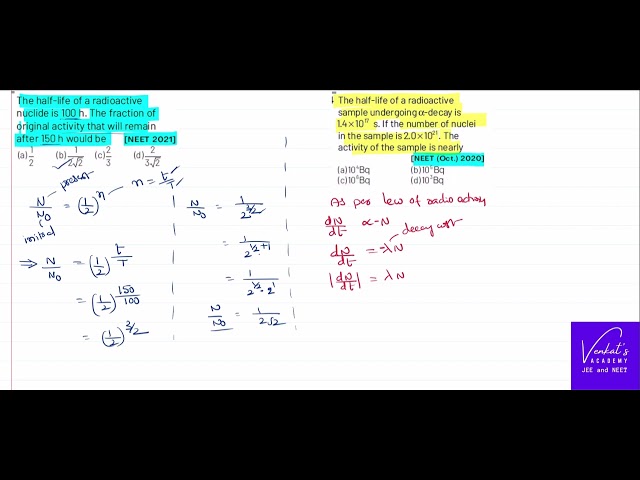 The half-life of a radioactive
nuclide is 100 h. The fraction of
original activity that will remain
after 150 h would be [NEET 2021]
(a) 1/2 (b) 1/2√2 (c) 2/3 (d) 2/3√2
present
N/N₀ = (1/2)ⁿ n = t/T
initial
⇒ N/N₀ = (1/2)^(t/T)
= (1/2)^(150/100)
= (1/2)^(3/2)
N/N₀ = 1/2^(3/2)
= 1/2^(1/2+1)
= 1/2^(1/2)·2¹
N/N₀ = 1/2√2
The half-life of a radioactive
sample undergoing α-decay is
1.4×10¹⁷ s. If the number of nuclei
in the sample is 2.0×10²¹. The
activity of the sample is nearly
[NEET (Oct.) 2020]
(a) 10⁴Bq (b) 10⁵Bq
(c) 10⁶Bq (d) 10³Bq
As per law of radioactivity
dN/dt ∝ -N
decay const
dN/dt = -λN
|dN/dt| = λN
Venkat's
ACADEMY
JEE and NEET